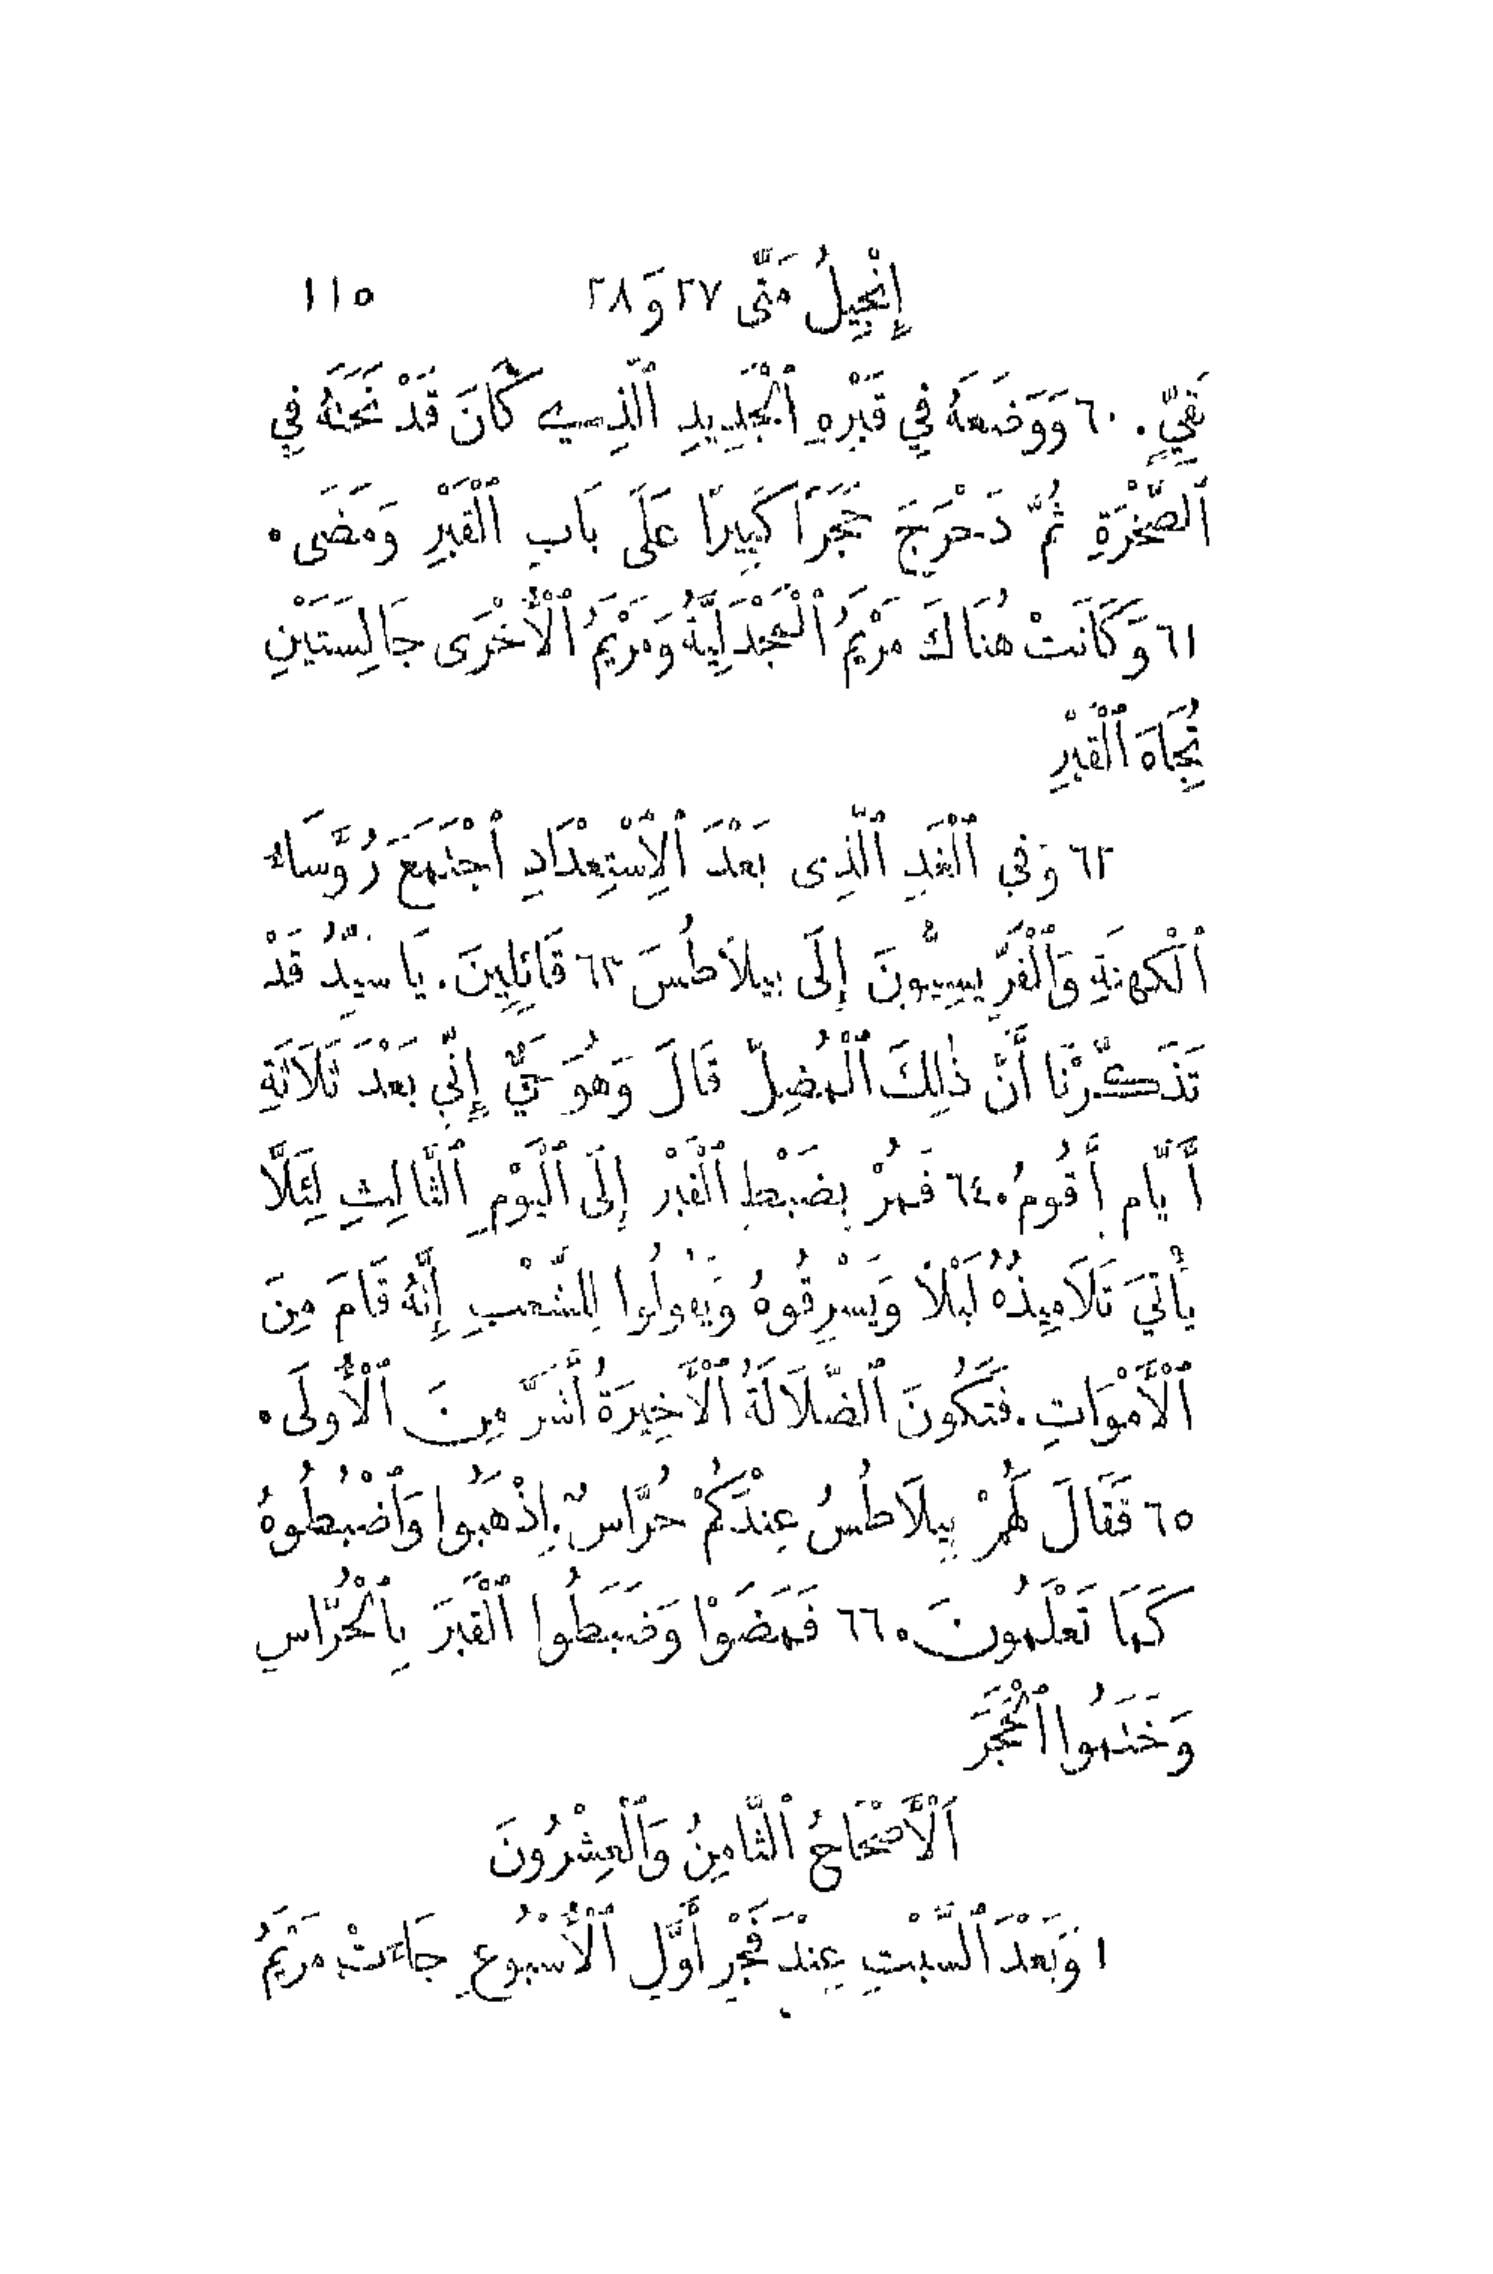 إِنْجِيلُ مَتَّى ٢٧ وَ ٢٨ ١١٥
نَقِيٍّ. ٦٠ وَوَضَعَهُ فِي قَبْرِهِ ٱلْجَدِيدِ ٱلَّذِي كَانَ قَدْ نَحَتَهُ فِي
ٱلصَّخْرَةِ ثُمَّ دَحْرَجَ حَجَرًا كَبِيرًا عَلَى بَابِ ٱلْقَبْرِ وَمَضَى.
٦١ وَكَانَتْ هُنَاكَ مَرْيَمُ ٱلْمَجْدَلِيَّةُ وَمَرْيَمُ ٱلْأُخْرَى جَالِسَتَيْنِ
تُجَاهَ ٱلْقَبْرِ
٦٢ وَفِي ٱلْغَدِ ٱلَّذِي بَعْدَ ٱلِٱسْتِعْدَادِ ٱجْتَمَعَ رُؤَسَاءُ
ٱلْكَهَنَةِ وَٱلْفَرِّيسِيُّونَ إِلَى بِيلَاطُسَ ٦٣ قَائِلِينَ. يَا سَيِّدُ قَدْ
تَذَكَّرْنَا أَنَّ ذٰلِكَ ٱلْمُضِلَّ قَالَ وَهُوَ حَيٌّ إِنِّي بَعْدَ ثَلَاثَةِ
أَيَّامٍ أَقُومُ. ٦٤ فَمُرْ بِضَبْطِ ٱلْقَبْرِ إِلَى ٱلْيَوْمِ ٱلثَّالِثِ لِئَلَّا
يَأْتِيَ تَلَامِيذُهُ لَيْلًا وَيَسْرِقُوهُ وَيَقُولُوا لِلشَّعْبِ إِنَّهُ قَامَ مِنَ
ٱلْأَمْوَاتِ. فَتَكُونَ ٱلضَّلَالَةُ ٱلْأَخِيرَةُ أَشَرَّ مِنَ ٱلْأُولَى.
٦٥ فَقَالَ لَهُمْ بِيلَاطُسُ عِنْدَكُمْ حُرَّاسٌ. اِذْهَبُوا وَٱضْبُطُوهُ
كَمَا تَعْلَمُونَ. ٦٦ فَمَضَوْا وَضَبَطُوا ٱلْقَبْرَ بِٱلْحُرَّاسِ
وَخَتَمُوا ٱلْحَجَرَ
اَلْأَصْحَاحُ ٱلثَّامِنُ وَٱلْعِشْرُونَ
١ وَبَعْدَ ٱلسَّبْتِ عِنْدَ فَجْرِ أَوَّلِ ٱلْأُسْبُوعِ جَاءَتْ مَرْيَمُ